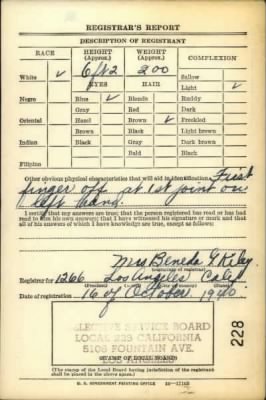 REGISTRAR'S REPORT
DESCRIPTION OF REGISTRANT
RACE HEIGHT (Approx.) WEIGHT (Approx.) COMPLEXION
6 ft 2 200
White ✓ EYES HAIR Sallow
Light ✓
Negro Blue ✓ Blonde Ruddy
Gray Red Dark
Oriental Hazel Brown ✓ Freckled
Brown Black Light brown
Indian Black Gray Dark brown
Bald Black
Filipino
Other obvious physical characteristics that will aid in identification First
finger off at 1st joint on
left hand.
I certify that my answers are true; that the person registered has read or has had
read to him his own answers; that I have witnessed his signature or mark and that
all of his answers of which I have knowledge are true, except as follows:
Mrs Beneda G Kiley
(Signature of registrar)
Registrar for 1266 Los Angeles Calif
Date of registration 16 of October 1940.
SELECTIVE SERVICE BOARD
LOCAL 228 CALIFORNIA
5109 FOUNTAIN AVE.
LOS ANGELES
(STAMP OF LOCAL BOARD)
228
(The stamp of the Local Board having jurisdiction of the registrant
shall be placed in the above space.)
U. S. GOVERNMENT PRINTING OFFICE